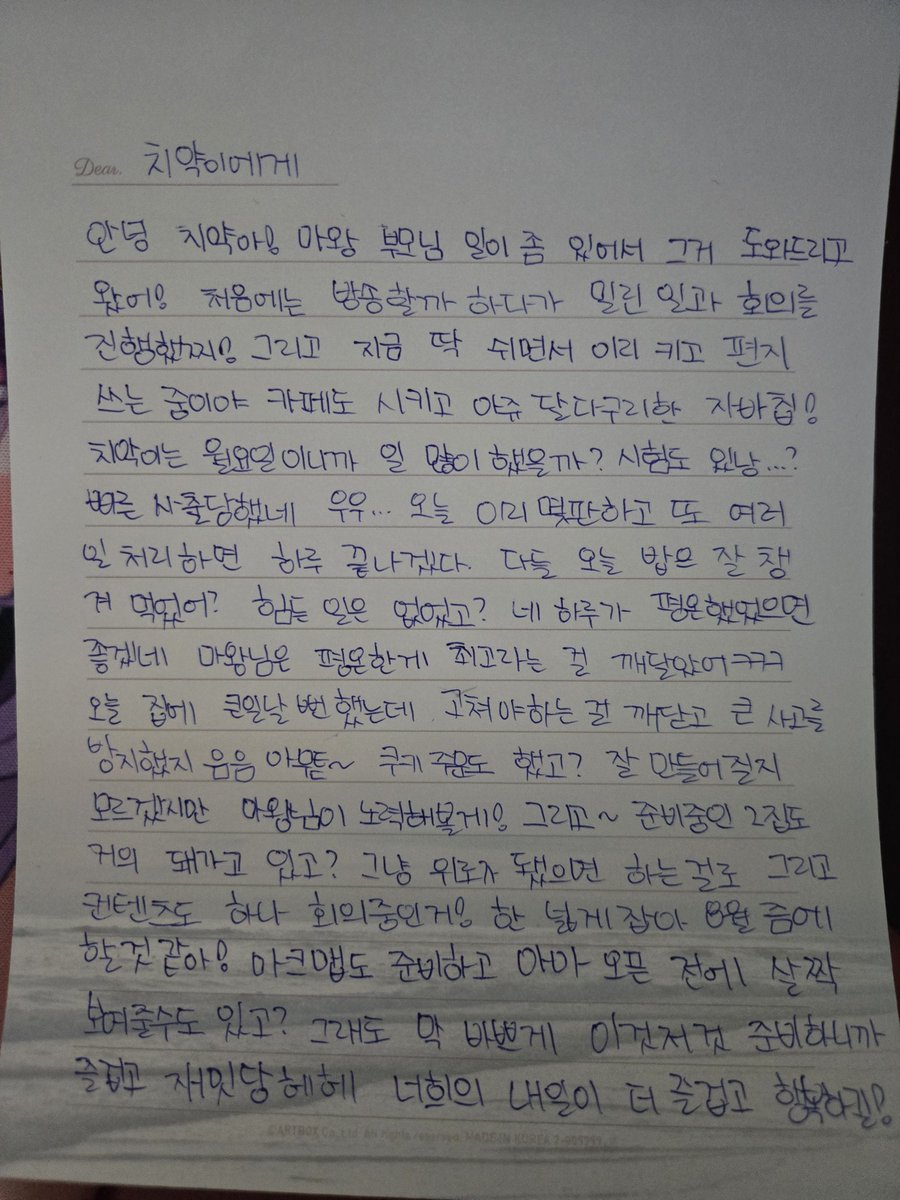 Dear. 치약이에게
안녕 치약아! 마왕 부모님 일이 좀 있어서 그거 도와드리고
왔어! 처음에는 방송할까 하다가 밀린 일과 회의를
진행했찌! 그리고 지금 딱 쉬면서 이리 키고 편지
쓰는 중이야 카페도 시키고 아쥬 달다구리한 자바칩!
치약이는 월요일이니까 일 많이 했을까? 시험도 있낭...?
빠른 사출당했네 우우... 오늘 이리 몇판하고 또 여러
일 처리하면 하루 끝나겠다. 다들 오늘 밥은 잘 챙
겨 먹었어? 힘든 일은 없었고? 네 하루가 평온했었으면
좋겠네 마왕님은 평온한게 최고라는 걸 깨달았어ㅋㅋㅋ
오늘 집에 큰일날 뻔 했는데 고쳐야하는 걸 깨닫고 큰 사고를
방지했지 음음 아무튼~ 쿠키 주문도 했고? 잘 만들어질지
모르겠지만 마왕님이 노력해볼게! 그리고~ 준비중인 2집도
거의 돼가고 있고? 그냥 위로자 됐으면 하는걸로 그리고
컨텐츠도 하나 회의중인거! 한 넓게잡아 8월 즘에
할것 같아! 마크맵도 준비하고 아마 오픈 전에 살짝
보여줄수도 있고? 그래도 막 바쁘게 이것저것 준비하니까
즐겁고 재밋당 헤헤 너희의 내일이 더 즐겁고 행복하길!